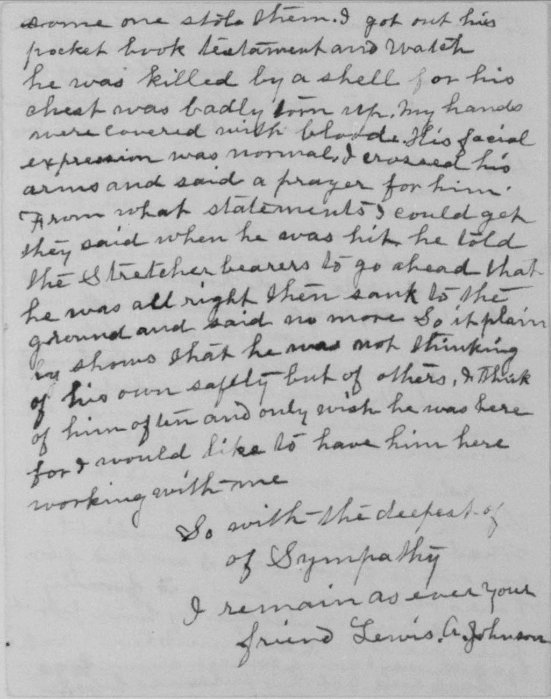 some one stole them. I got out his
pocket book testament and watch
he was killed by a shell for his
chest was badly torn up. My hands
were covered with bloode. His facial
expression was normal, I crossed his
arms and said a prayer for him.
From what statements I could get
they said when he was hit he told
the stretcher bearers to go ahead that
he was all right then sank to the
ground and said no more So it plain
ly shows that he was not thinking
of his own safety but of others, I think
of him often and only wish he was here
for I would like to have him here
working with me
So with the deepest of
of Sympathy
I remain as ever your
friend Lewis. A. Johnson